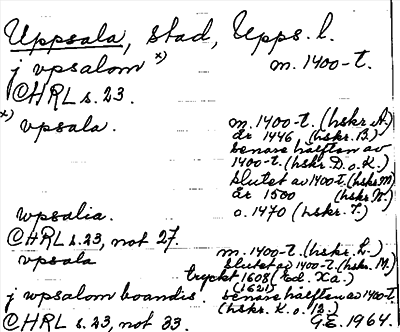 Uppsala, stad, Upps. l.
j vpsalom x) m. 1400-t.
CHRL s. 23.
x) vpsala. m. 1400-t. (hskr. A.)
År 1446 (hskr. B.)
senare hälften av
1400-t. (hskr. D. o. K.)
slutet av 1400-t. (hskr. M)
År 1500 (hskr. N.)
wpsalia. o. 1470 (hskr. I.)
CHRL s. 23, not 27.
vpsala m. 1400-t. (hskr. L.)
slutet av 1400-t. (hskr. M.)
tryckt 1608 (Ed. Xa.)
(1621)
j wpsalom boandis. senare hälften av 1400-t.
(hskr. K. o. B.)
CHRL s. 23, not 33. G.E. 1964.